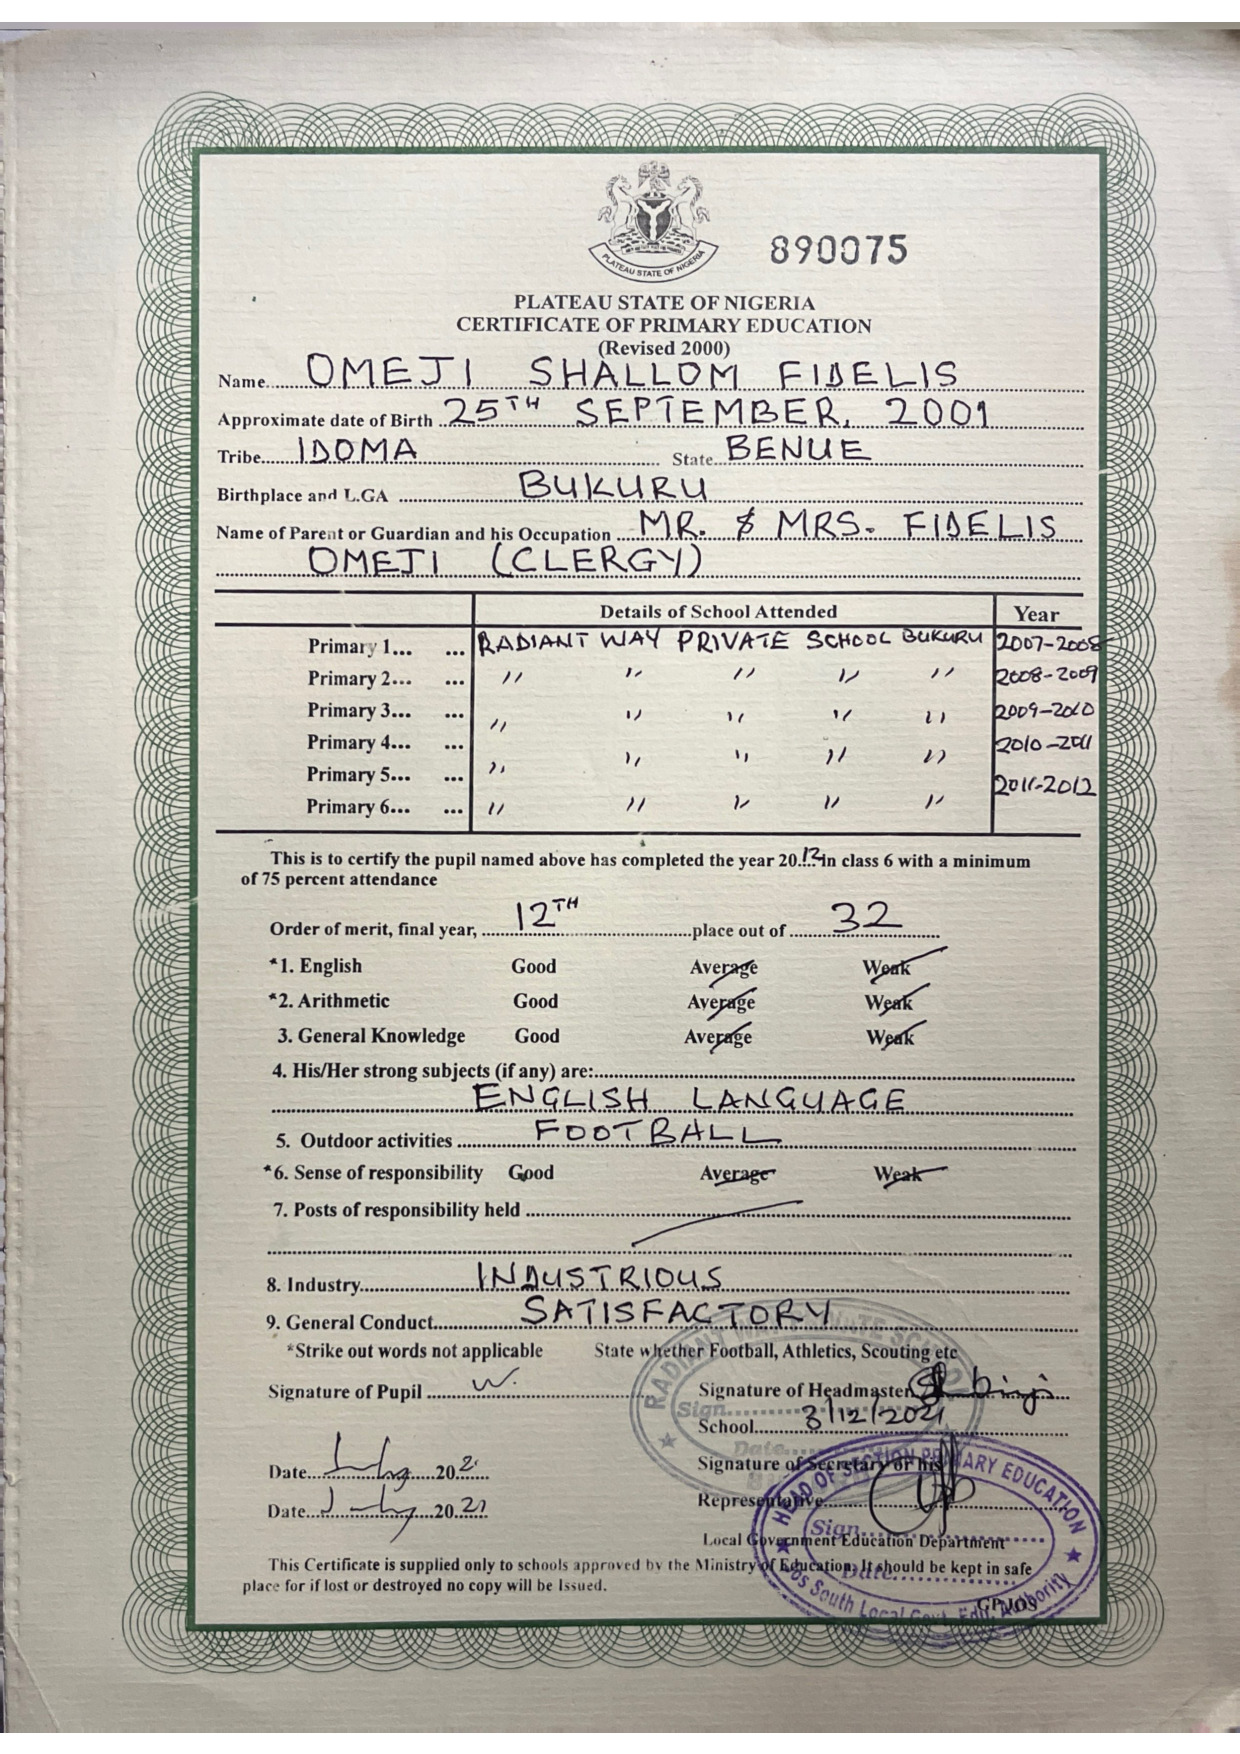 PLATEAU STATE OF NIGERIA
890075
PLATEAU STATE OF NIGERIA
CERTIFICATE OF PRIMARY EDUCATION
(Revised 2000)
Name......OMEJI SHALLOM FIDELIS
Approximate date of Birth ..25TH SEPTEMBER, 2001
Tribe......IDOMA...... State..BENUE
Birthplace and L.GA ......BUKURU
Name of Parent or Guardian and his Occupation ....MR. & MRS. FIDELIS
OMEJI (CLERGY)
Details of School Attended Year
Primary 1... ... RADIANT WAY PRIVATE SCHOOL BUKURU 2007-2008
Primary 2... ... " " " " " 2008-2009
Primary 3... ... " " " " " 2009-2010
Primary 4... ... 2010-2011
Primary 5... ... " " " " "
2011-2012
Primary 6... ... " " " " "
This is to certify the pupil named above has completed the year 20.12 in class 6 with a minimum
of 75 percent attendance
Order of merit, final year, ......12TH......place out of ......32......
*1. English Good Average Weak
*2. Arithmetic Good Average Weak
3. General Knowledge Good Average Weak
4. His/Her strong subjects (if any) are:......
ENGLISH LANGUAGE
5. Outdoor activities ......FOOTBALL
*6. Sense of responsibility Good Average Weak
7. Posts of responsibility held ......
8. Industry......INDUSTRIOUS
9. General Conduct......SATISFACTORY
*Strike out words not applicable State whether Football, Athletics, Scouting etc
Signature of Pupil ...... Signature of Headmaster
School......3/12/2021
RADIANT WAY PRIVATE SCHOOL
Sign......
Date......
Date...... 20.2. Signature of Secretary or his
Date...... 20.21 Representative......
HEAD OF SECTION PRIMARY EDUCATION
Sign......
Local Government Education Department
Date......
Jos South Local Govt. Edu. Authority
This Certificate is supplied only to schools approved by the Ministry of Education. It should be kept in safe
place for if lost or destroyed no copy will be Issued.
GPJOS